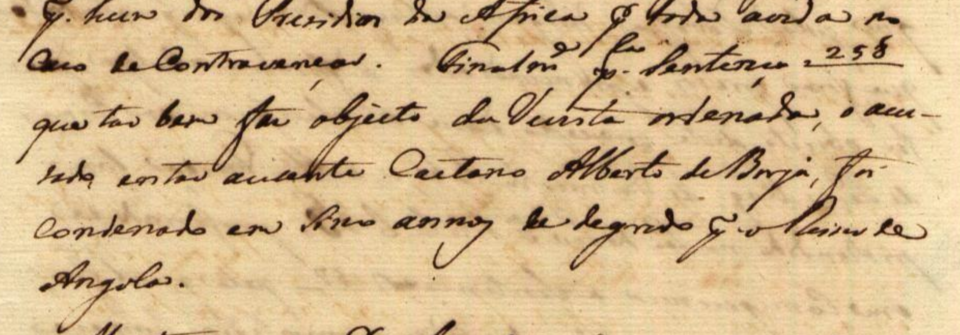 p.ª hum dos Presidios da Africa p.ª toda avida no
Caso de Contravençaõ. Finalm.e p.la Sentença 258
que taõ bem faz objecto da Revista ordenada, o acu-
sado entaõ auzente Caetano Alberto de Borja, foi
condenado em sinco annos de degredo p.ª o Reino de
Angola.